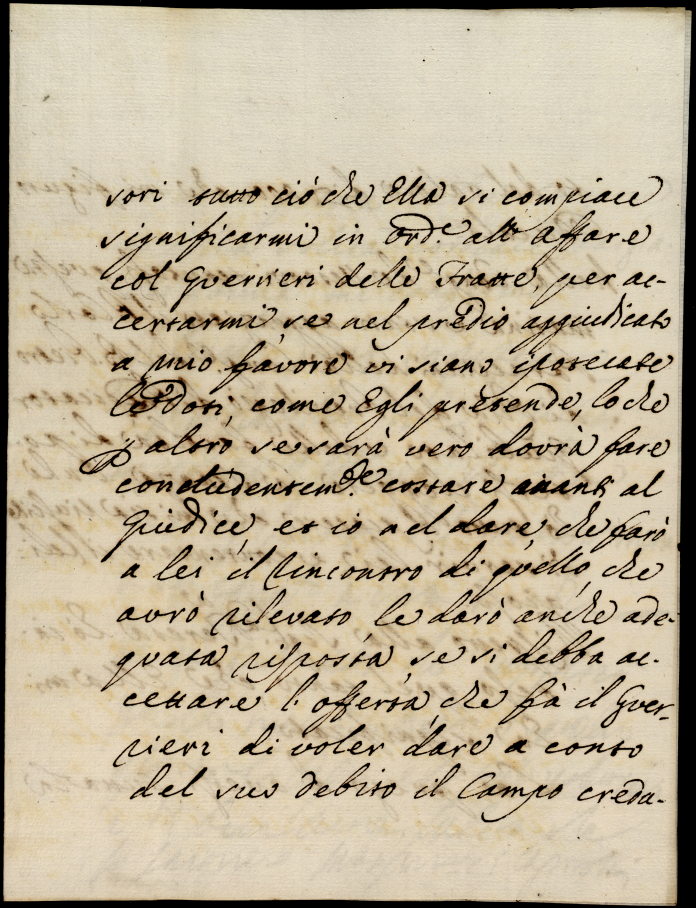 sori tutto ciò che Ella si compiace
significarmi in ord.e all affare
col Guerrieri delle Fratte, per ac-
certarmi, se nel predio aggiudicato
a mio favore vi siano ipotecate
le Doti, come Egli pretende, lo che
p altro se sarà vero dovrà fare
concludentem.te costare avanti al
Giudice, et io nel dare, che farò
a lei il rincontro di quello, che
avrò rilevato le darò anche ade-
quata risposta, se si debba ac-
cettare l'offerta, che fà il Guer-
rieri di voler dare a conto
del suo debito il Campo creda-